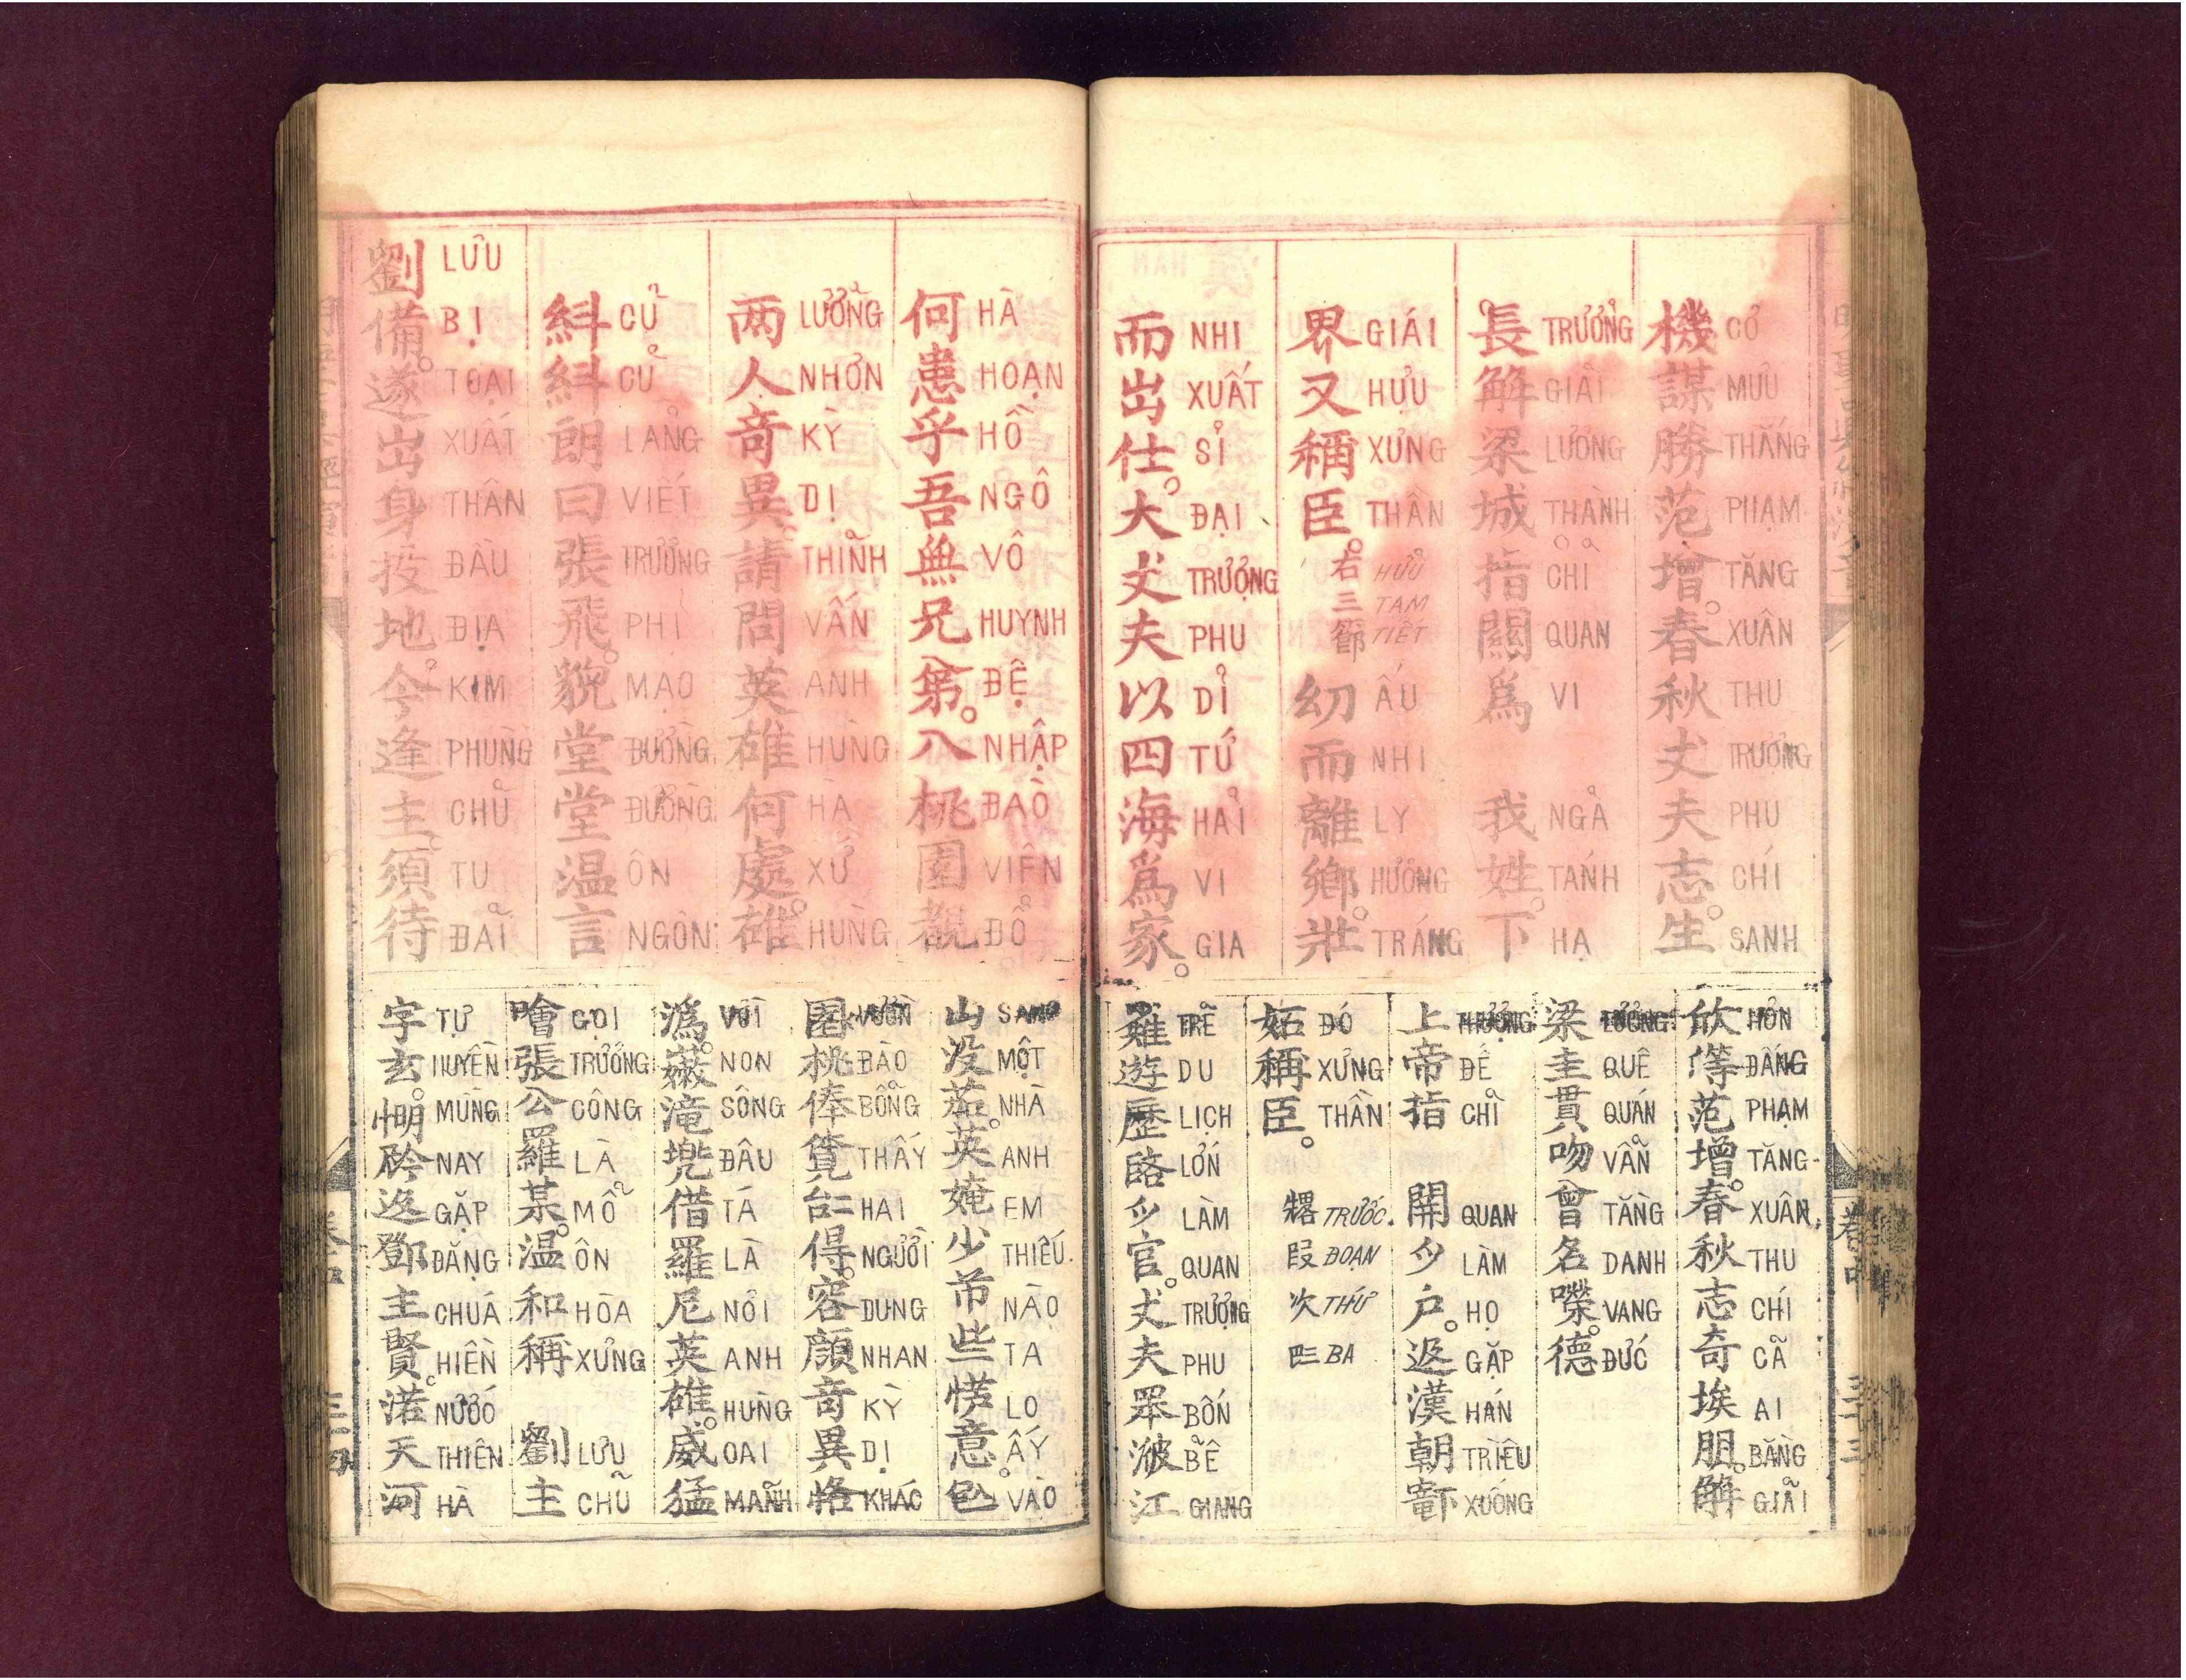 機謀勝范增。春秋丈夫志。生
CƠ MƯU THẮNG PHẠM TĂNG XUÂN THU TRƯỢNG PHU CHÍ SANH
長解梁城指關爲 我姓。下
TRƯỞNG GIẢI LƯƠNG THÀNH CHỈ QUAN VI NGÃ TÁNH HẠ
界又稱臣。右三節 幼而離鄉。壯
GIÁI HỰU XƯNG THẦN HỮU TAM TIẾT ẤU NHI LY HƯƠNG TRÁNG
而出仕。大丈夫以四海爲家。
NHI XUẤT SĨ ĐẠI TRƯỢNG PHU DĨ TỨ HẢI VI GIA
欣等范增。春秋志奇埃朋。解
HƠN ĐẤNG PHẠM TĂNG XUÂN THU CHÍ CẢ AI BẰNG GIẢI
梁圭貫吻曾名嘹。德
LƯƠNG QUÊ QUÁN VẪN TẰNG DANH VANG ĐỨC
上帝指 開󰠣户。返漢朝𥪝
THƯỢNG ĐẾ CHỈ QUAN LÀM HỌ GẶP HÁN TRIỀU XUỐNG
妬稱臣。 𠓀段次𠀧
ĐÓ XƯNG THẦN TRƯỚC ĐOẠN THỨ BA
遊歷 官。丈夫 江
TRẺ DU LỊCH LỚN LÀM QUAN TRƯỢNG PHU BỐN BỂ GIANG
何患乎吾無兄弟。入桃園觀
HÀ HOẠN HỒ NGÔ VÔ HUYNH ĐỆ NHẬP ĐÀO VIÊN ĐỔ
两人奇異。請問英雄何處。雄
LƯỠNG NHƠN KỲ DỊ THỈNH VẤN ANH HÙNG HÀ XỨ HÙNG
糾糾朗曰張飛。貌堂堂温言
CỦ CỦ LÃNG VIẾT TRƯƠNG PHI MẠO ĐƯỜNG ĐƯỜNG ÔN NGÔN
劉備。遂出身投地今逢主。須待
LƯU BỊ TOẠI XUẤT THÂN ĐẦU ĐỊA KIM PHÙNG CHỦ TU ĐÃI
山沒茹。英㛪少芇些 意。𠓨
SANG MỘT NHÀ ANH EM THIẾU NÀO TA LO ẤY VÀO
園桃俸覽𠄩㝵。容顔奇異恪
VƯỜN ĐÀO BỖNG THẤY HAI NGƯỜI DUNG NHAN KỲ DỊ KHÁC
潙。 滝兠借羅尼英雄。威猛
VỜI NON SÔNG ĐÂU TÁ LÀ NƠI ANH HÙNG OAI MÃNH
噲張公羅某。温和稱 劉主
GỌI TRƯƠNG CÔNG LÀ MỖ ÔN HÒA XƯNG LƯU CHỦ
字玄。 鄧主賢。渃天河
TỰ HUYỀN MỪNG NAY GẶP ĐẶNG CHÚA HIỀN NƯỚC THIÊN HÀ